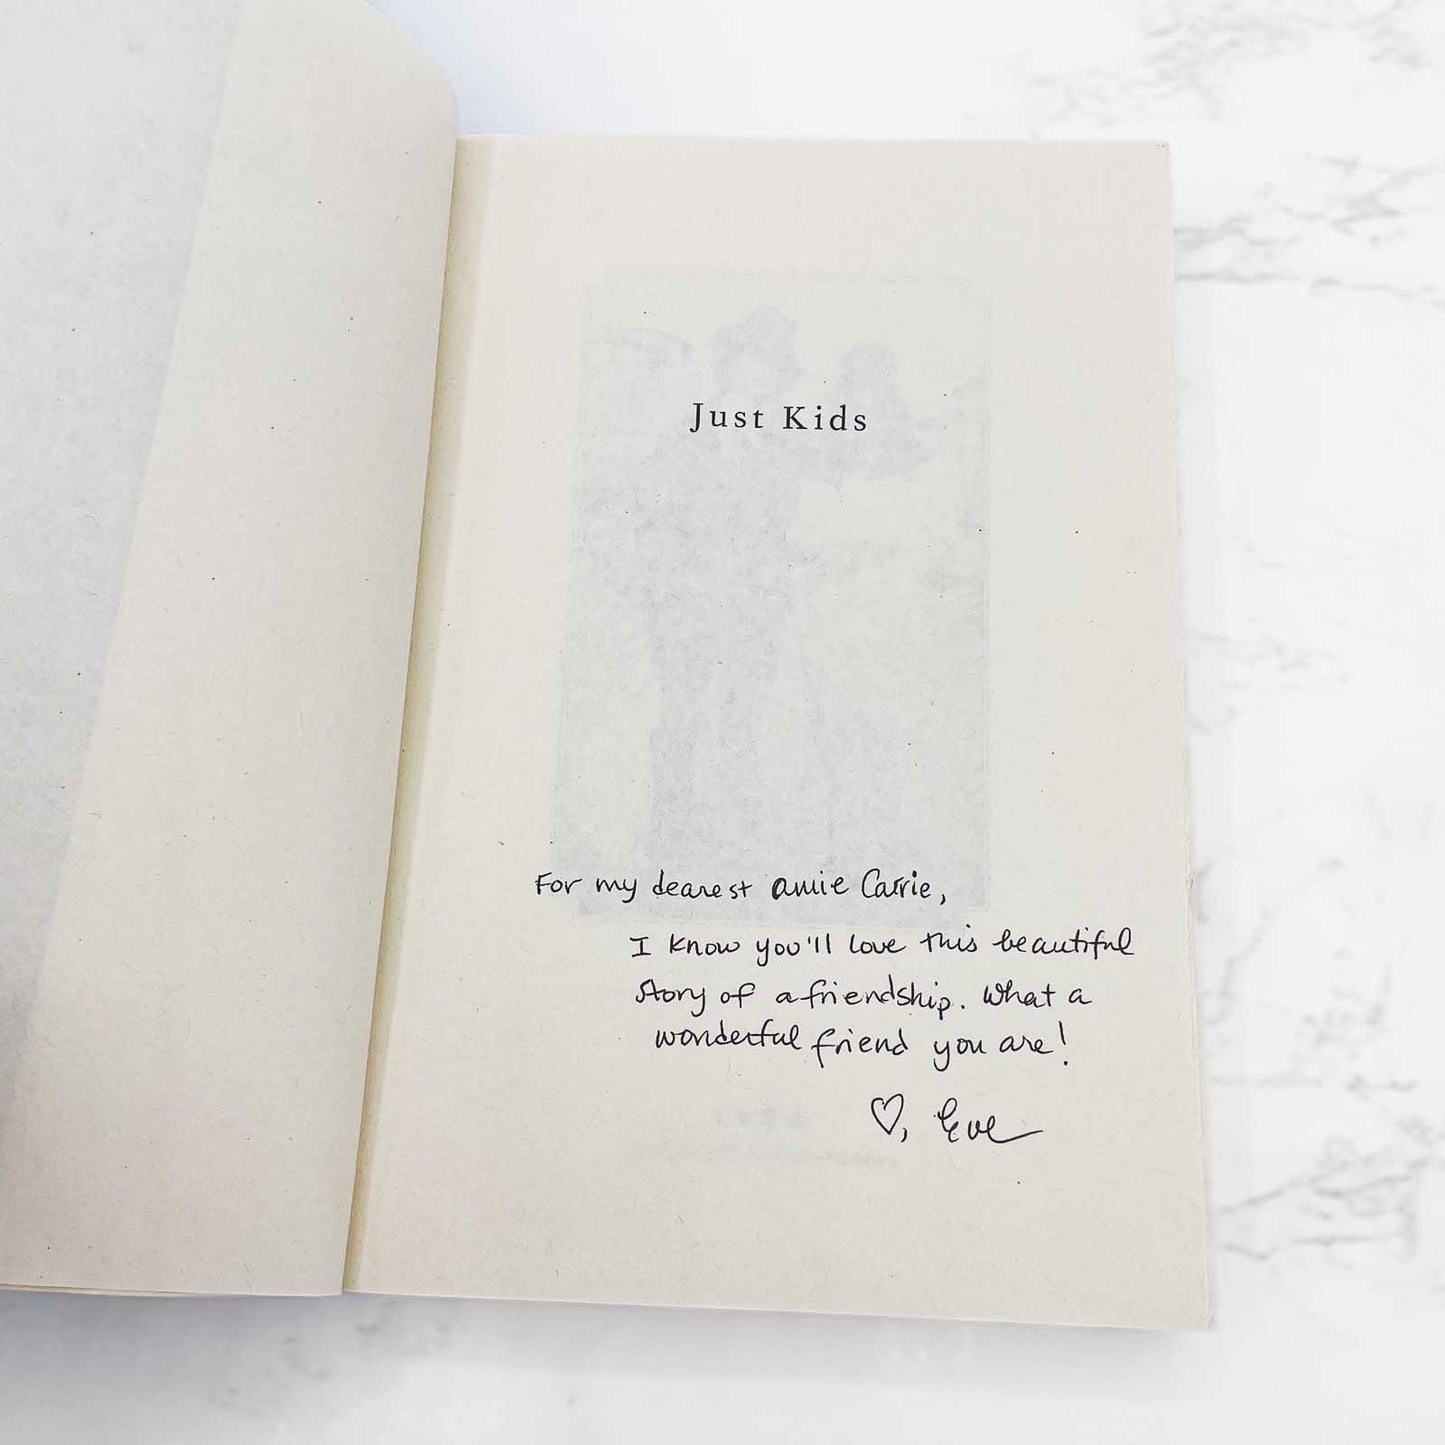 Just Kids
For my dearest amie Carrie,
I know you'll love this beautiful
story of a friendship. What a
wonderful friend you are!
♡, Eve